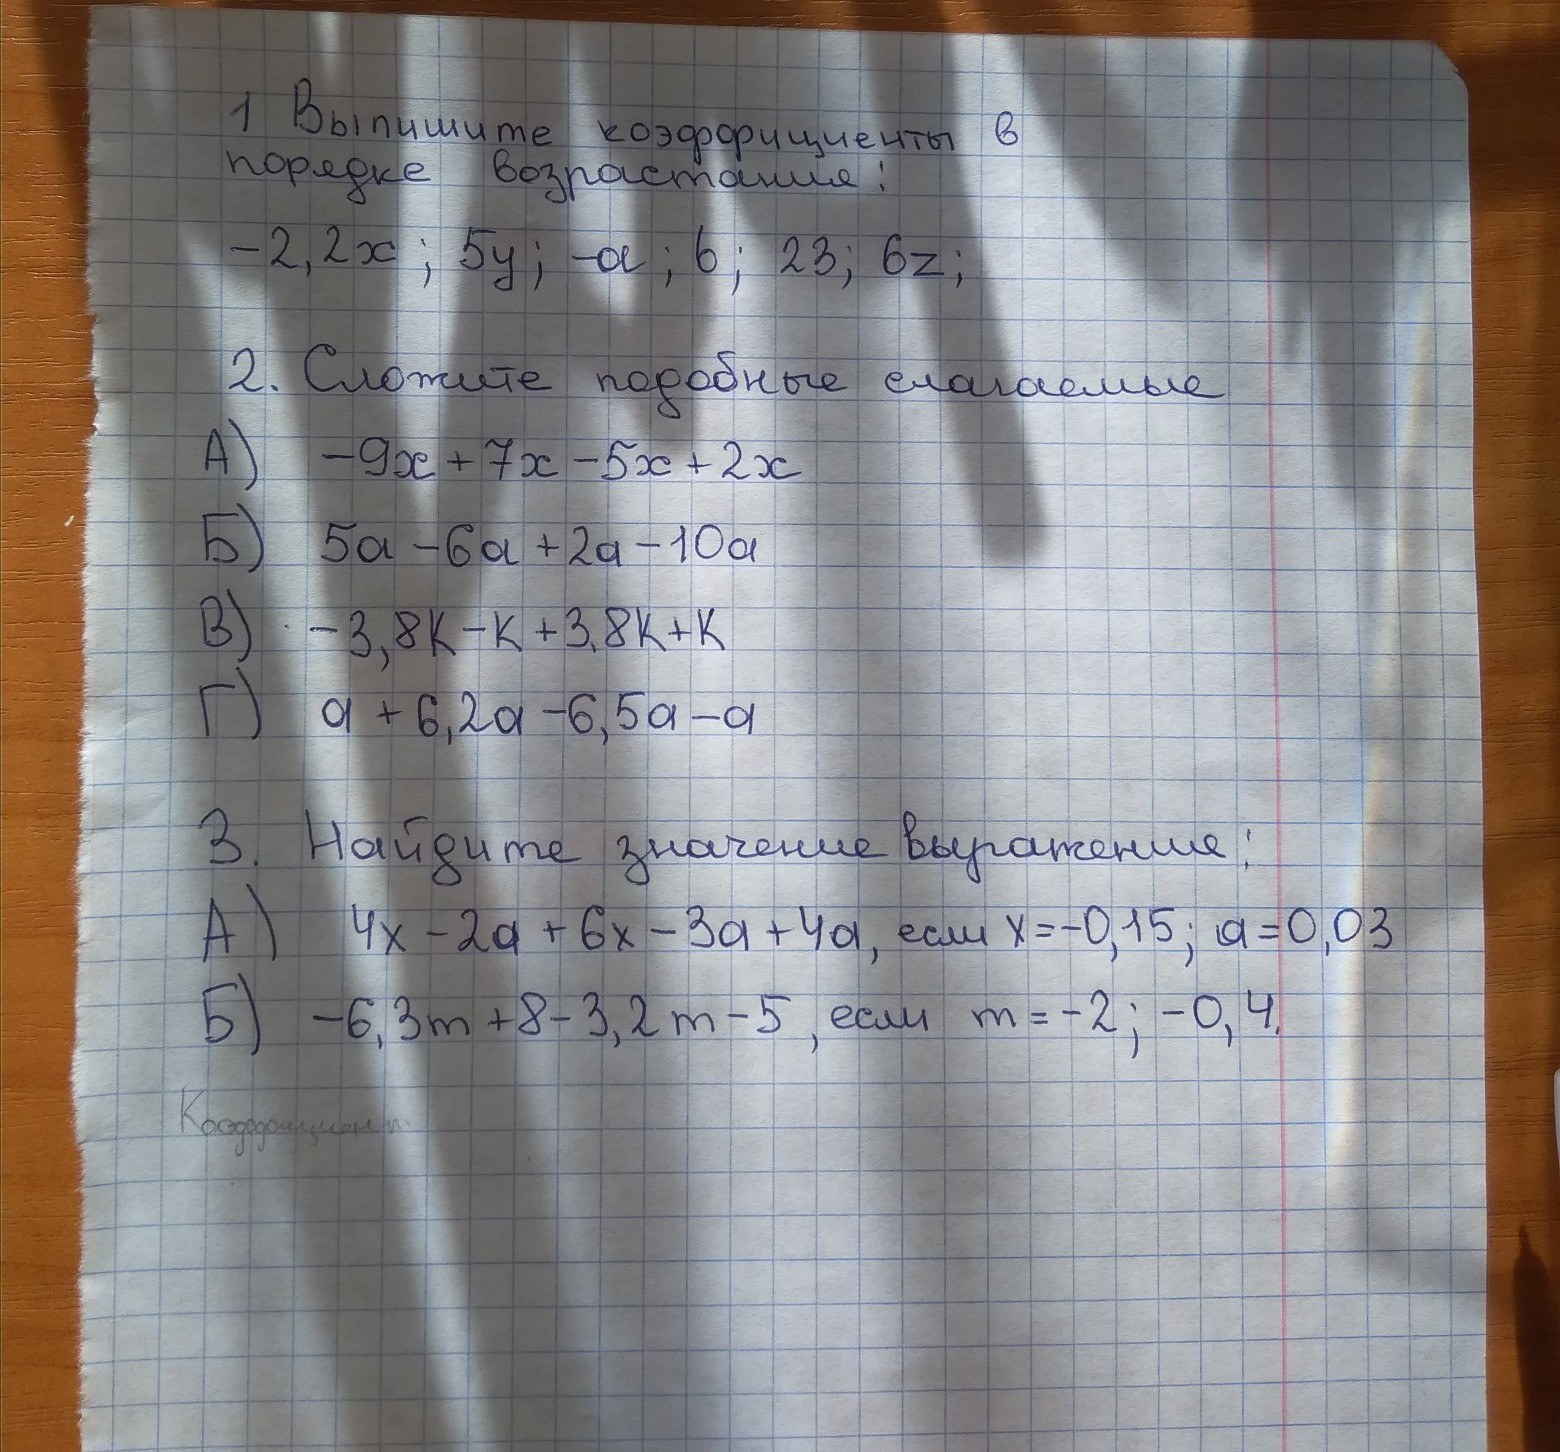 1 Выпишите коэффициенты в
порядке возрастания:
-2,2x; 5y; -a; b; 23; 6z;
2. Сложите подобные слагаемые
А) -9x+7x-5x+2x
Б) 5a-6a+2a-10a
В) -3,8к-к+3,8к+к
Г) a+6,2a-6,5a-a
3. Найдите значение выражения:
А) 4x-2a+6x-3a+4a, если x=-0,15; a=0,03
Б) -6,3m+8-3,2m-5, если m=-2; -0,4.
Коэффициент